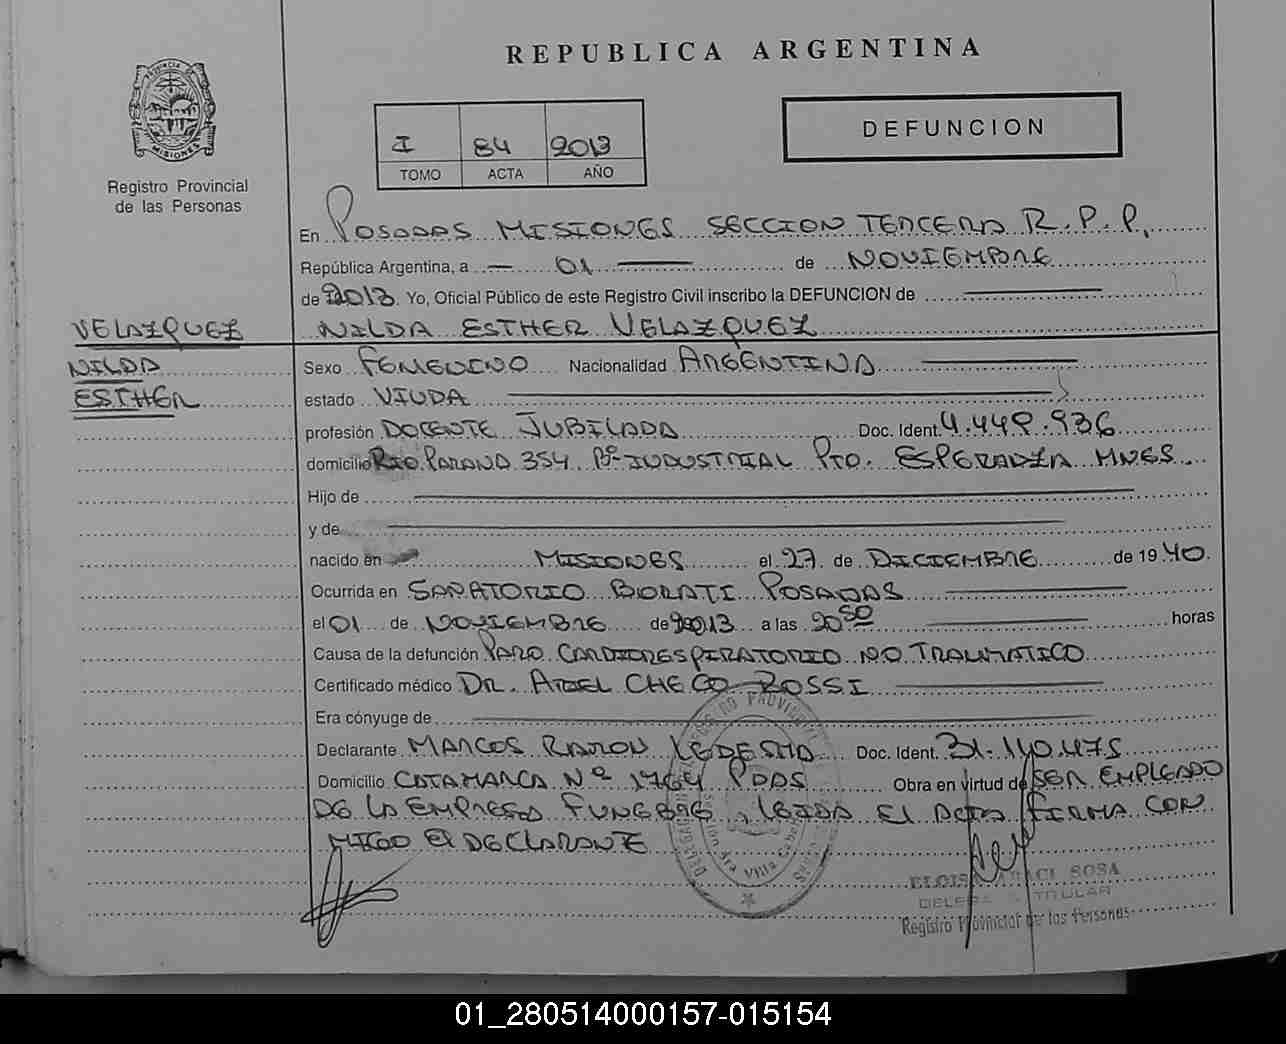 REPUBLICA ARGENTINA
PROVINCIA DE
MISIONES
Registro Provincial
de las Personas
I 84 2013
TOMO ACTA AÑO
DEFUNCION
En POSADAS MISIONES SECCION TERCERA R.P.P.
República Argentina, a 01 de NOVIEMBRE
de 2013. Yo, Oficial Público de este Registro Civil inscribo la DEFUNCION de
VELAZQUEZ
NILDA ESTHER VELAZQUEZ
NILDA
ESTHER
Sexo FEMENINO Nacionalidad ARGENTINA
estado VIUDA
profesión DOCENTE JUBILADA Doc. Ident. 4.449.936
domicilio RIO PARANA 354 Bº INDUSTRIAL PTO. ESPERANZA MNES.
Hijo de
y de
nacido en MISIONES el 27 de DICIEMBRE de 1940.
Ocurrida en SANATORIO BORATTI POSADAS
el 01 de NOVIEMBRE de 2013 a las 20 50 horas
Causa de la defunción PARO CARDIORESPIRATORIO NO TRAUMATICO
Certificado médico DR. ARIEL CHECO ROSSI
Era cónyuge de
Declarante MARCOS RAMON LEDESMA Doc. Ident. 31.140.475
Domicilio CATAMARCA Nº 1764 PDAS Obra en virtud de SER EMPLEADO
DE LA EMPRESA FUNEBRE, LEIDA EL ACTA FIRMA CON
MIGO EL DECLARANTE
ELOISA ARACI SOSA
DELEGADA TITULAR
Registro Provincial de las Personas
01_280514000157-015154